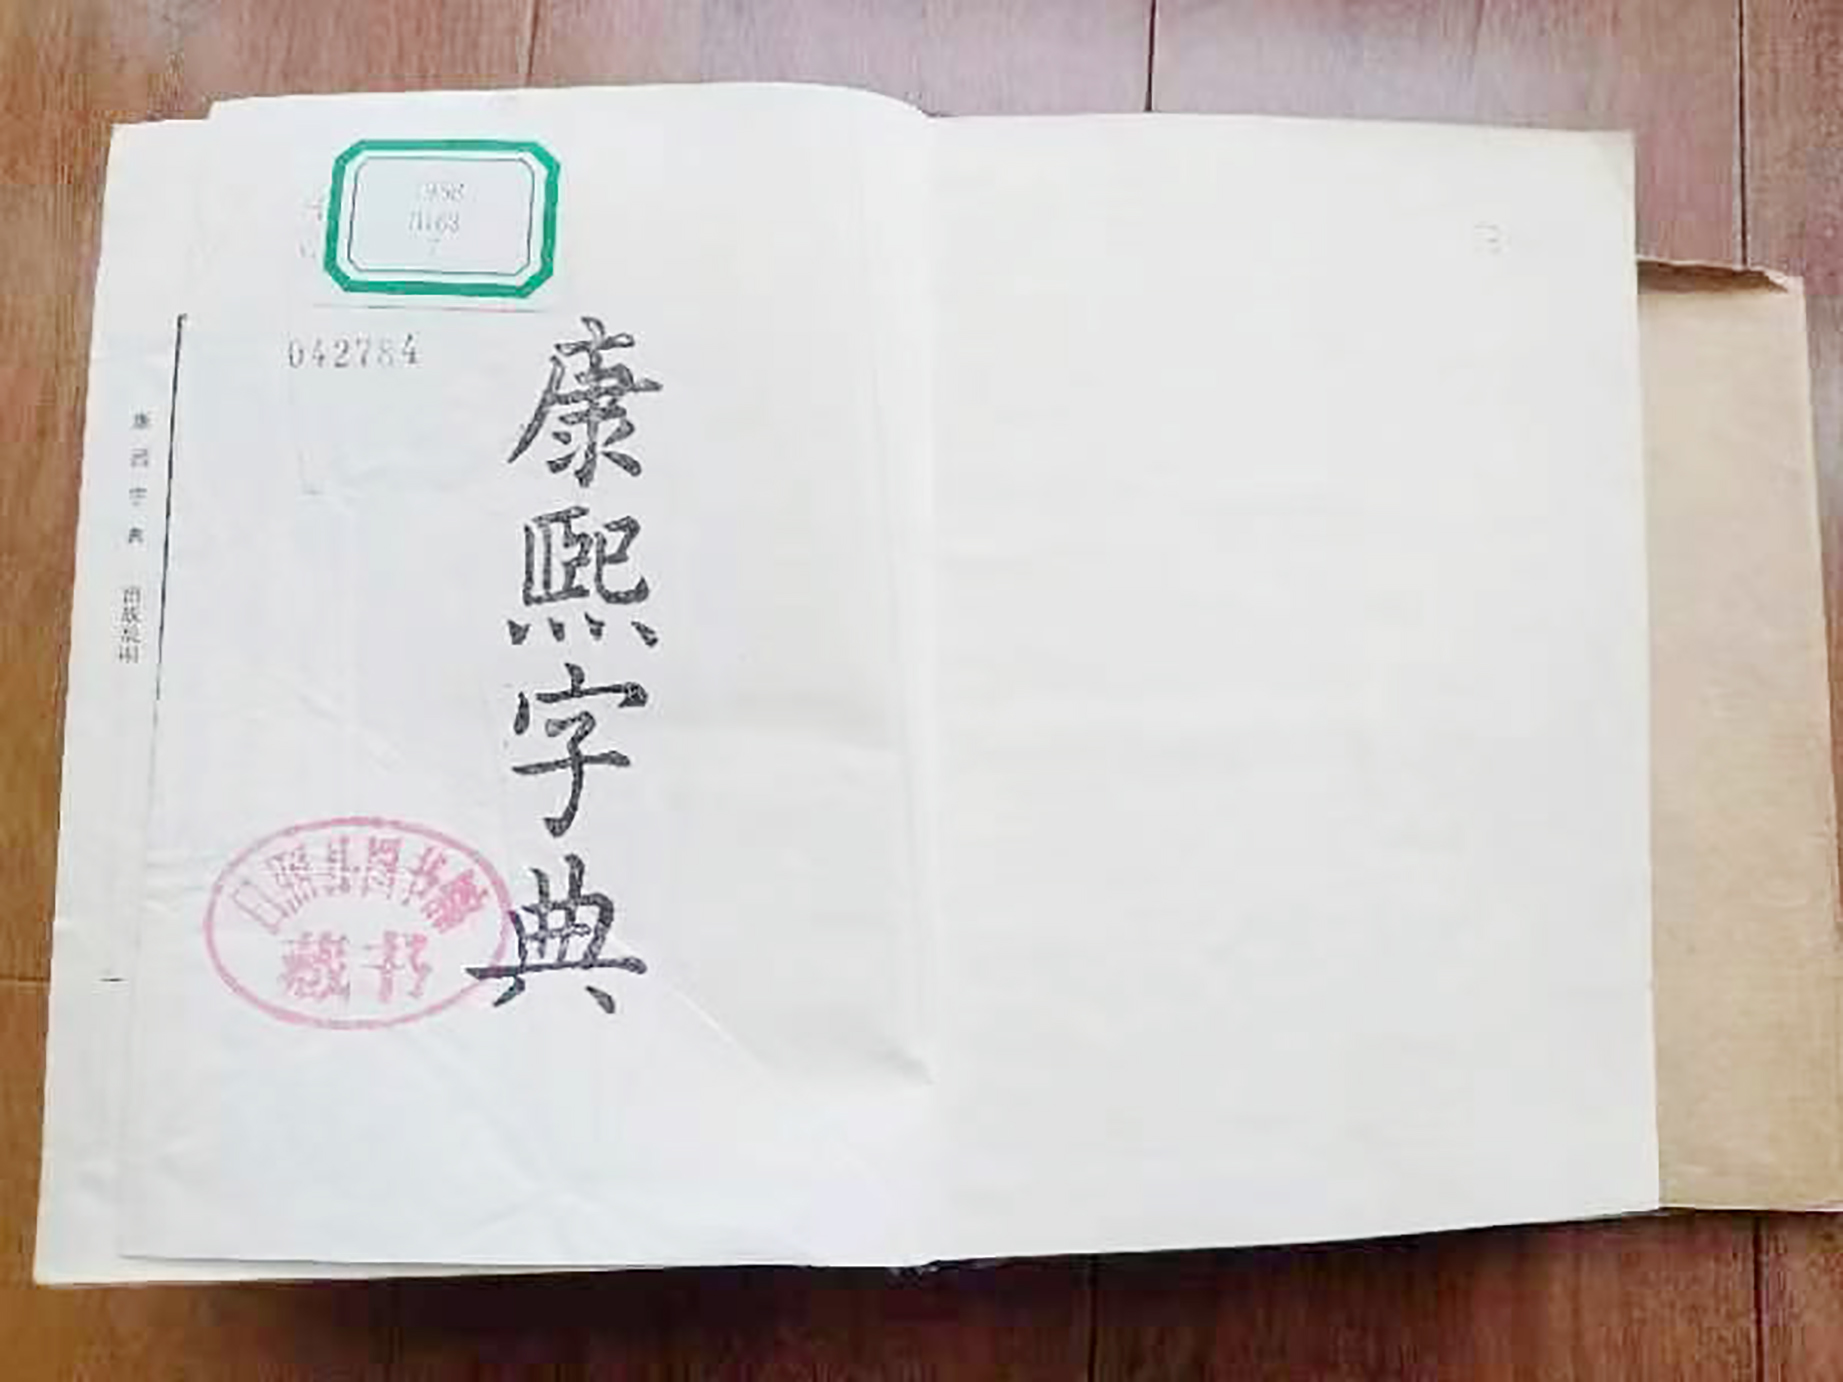 042784
康熙字典
康熙字典 出版说明
日照县图书馆
藏书